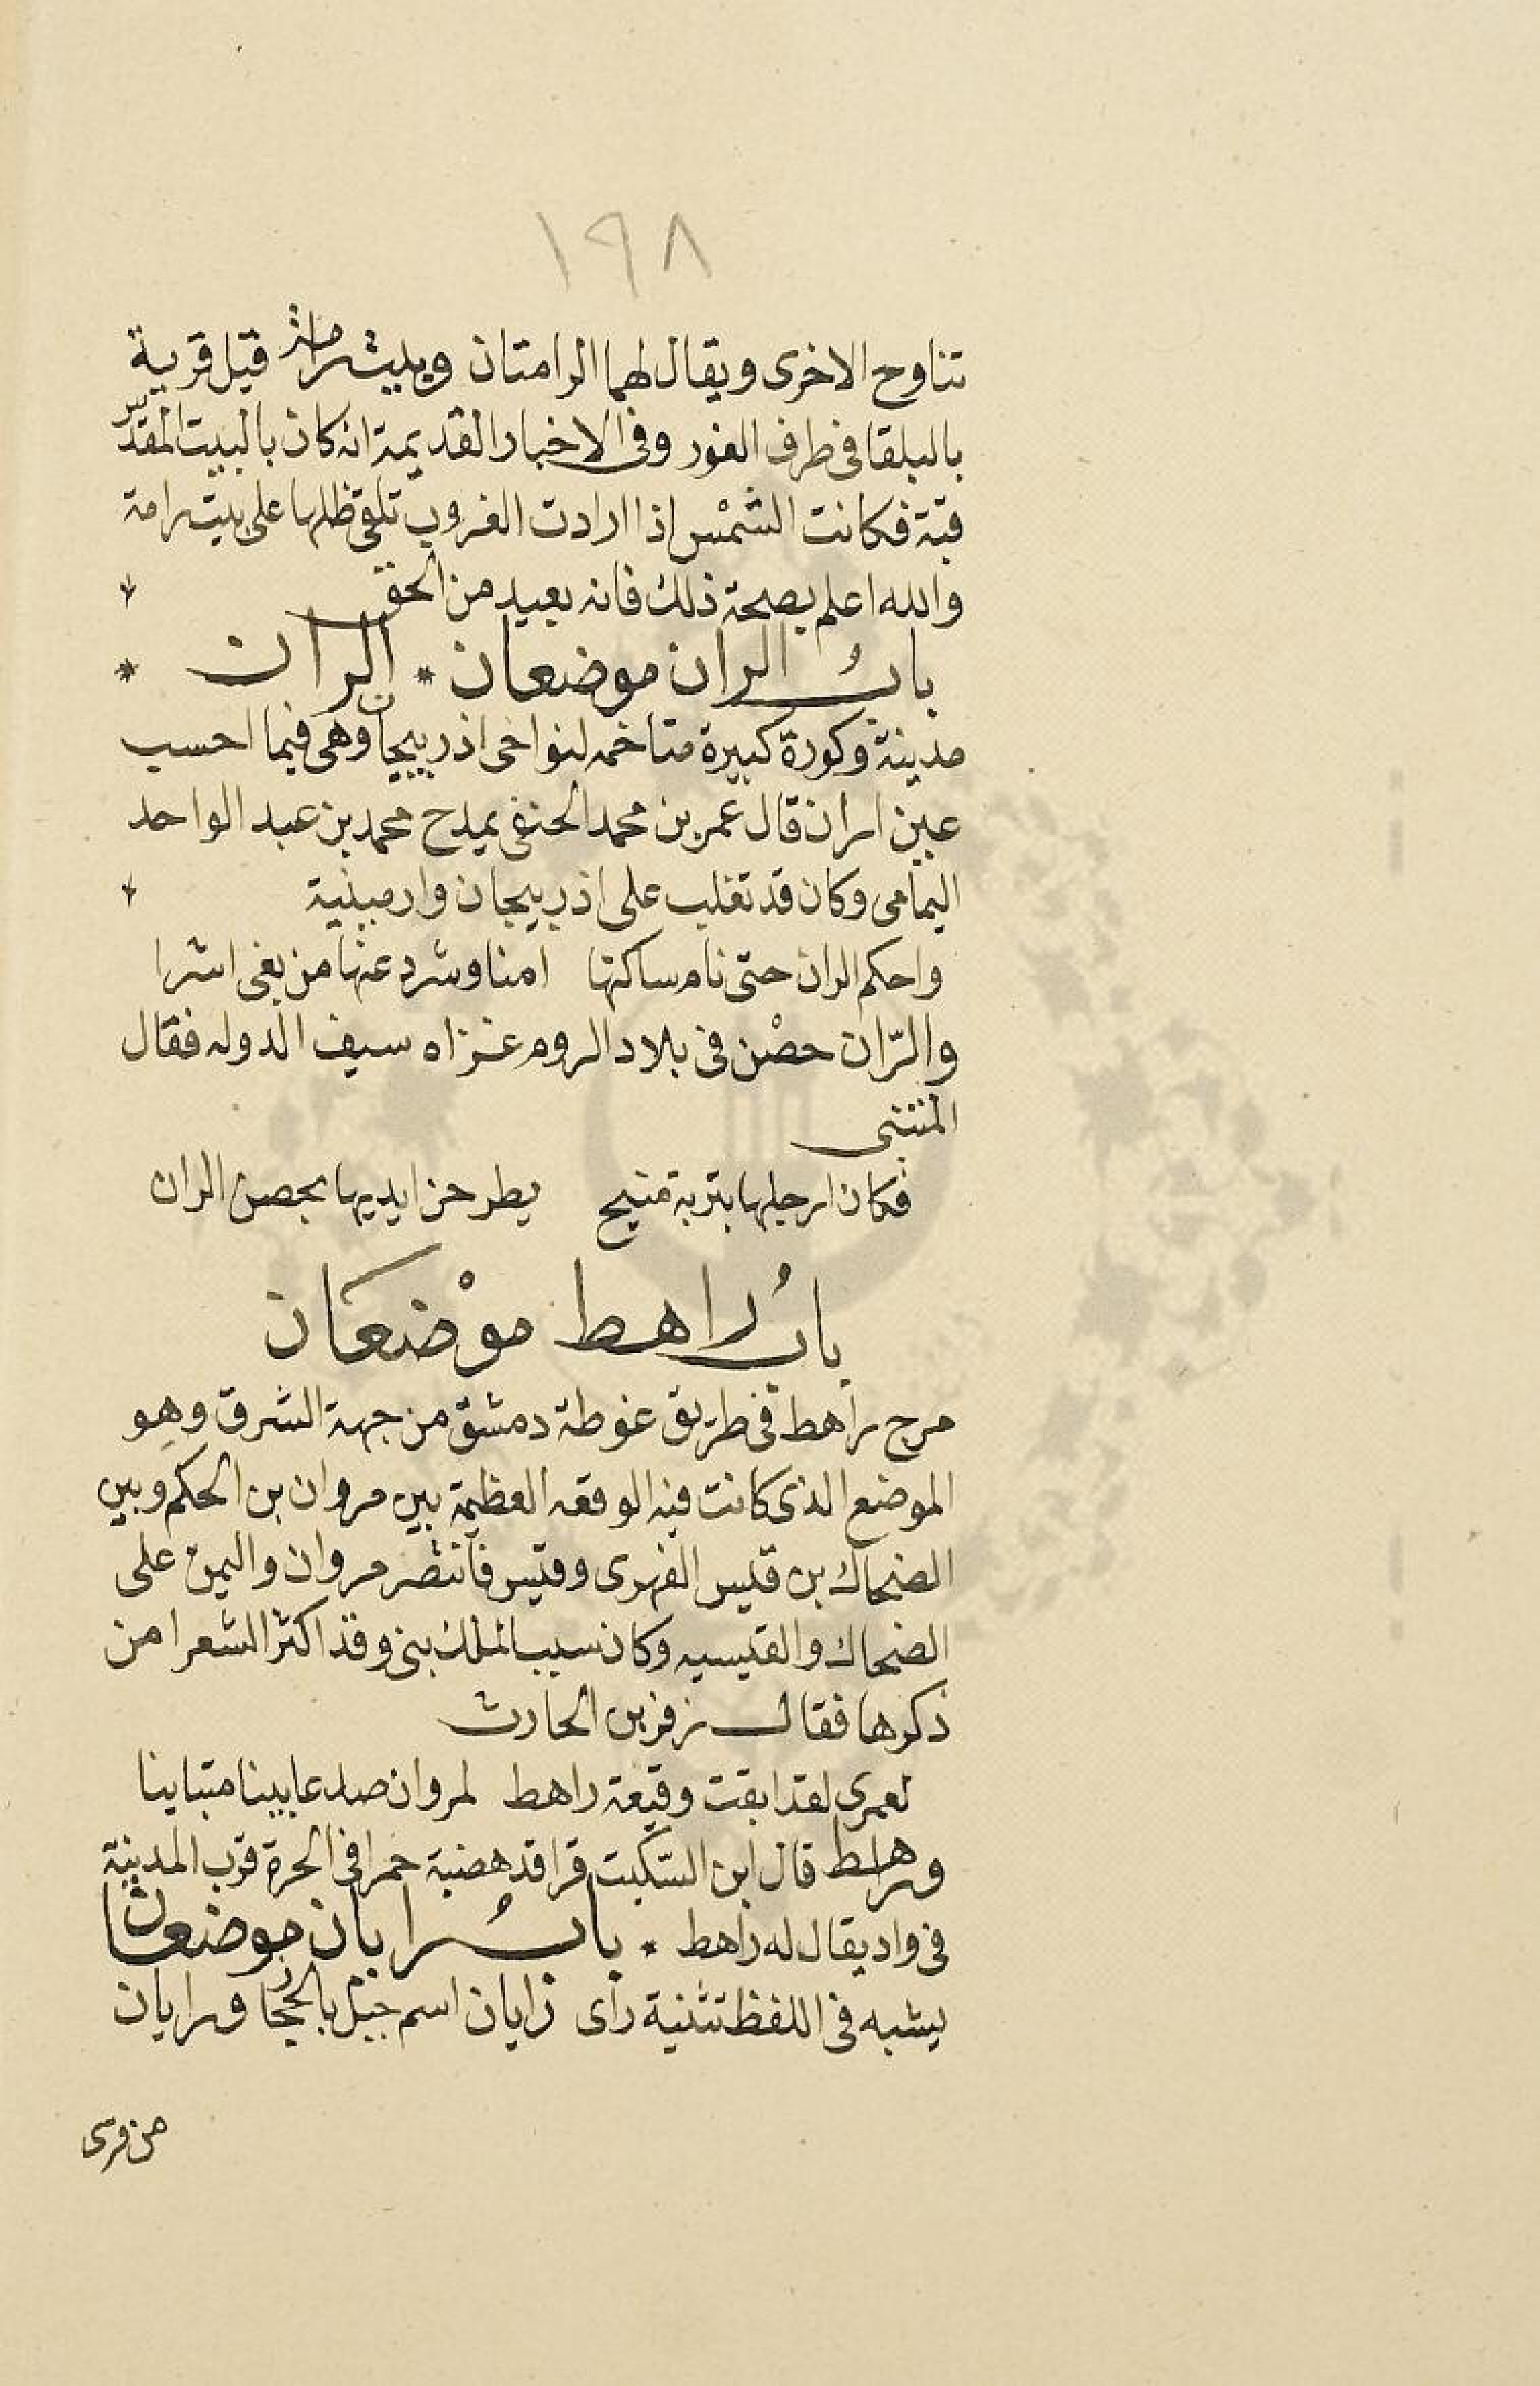 ١٩٨
تناوح الاخرى ويقال لهما الرامتان وبيت رامة قيل قرية
بالبلقا فى طرف الغور وفى الاخبار القديمة انه كان بالبيت المقدس
قبة فكانت الشمس اذا ارادت الغروب تلقى ظلها على بيت رامة
والله اعلم بصحة ذلك فانه بعيد من الحق
باب الران موضعان * الران *
مدينة وكورة كبيرة متاخمه لنواحى اذربيجان وهى فيما احسب
عين اران قال عمر بن محمد الحنفى يمدح محمد بن عبد الواحد
اليمامى وكان قد تغلب على اذربيجان وارمينية
واحكم الران حتى نام ساكنها امنا وشرد عنها من بغى اشرا
والرّان حصْن فى بلاد الروم غزاه سيف الدوله فقال
المتنبى
فكان ارجلها بتربة منبج يطرحن ايديها بحصن الران
بابُ راهط موْضعان
مرج راهط فى طريق غوطة دمشق من جهة الشرق وهو
الموضع الذى كانت فيه الوقعه العظيمة بين مروان بن الحكم وبين
الضحاك بن قيس الفهرى وقيس فانتصر مروان واليمن على
الضحاك والقيسيه وكان سببا لملك بنى وقد اكثر الشعرا من
ذكرها فقال زفر بن الحارث
لعمرى لقد ابقت وقيعة راهط لمروان صدعا بيننا متباينا
وراهط قال ابن السكيت قراقد هضبة حمرا فى الحرة قرب المدينة
فى واد يقال له راهط * بابُ رايان موضعان
يشبه فى اللفظ تثنية راى رايان اسم جبل بالحجاز ورايان
من قرى